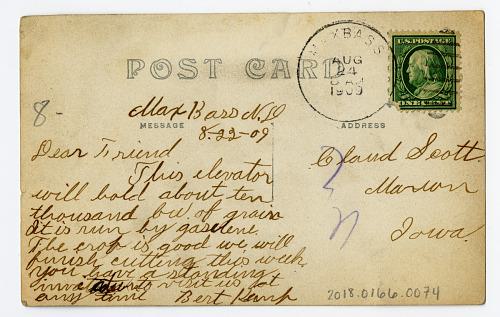 MAXBASS
AUG
24
1909
U.S. POSTAGE
ONE CENT
POST CARD
8-
Max Bass N.D
8-22-09
MESSAGE
ADDRESS
Dear Friend
This elevator
will hold about ten
thousand bu of grain
It is run by gasolene.
The crop is good we will
finish cutting this week
you have a standing
to visit us at
any time Bert
Claud Scott
Marion
Iowa.
2018.0166.0074